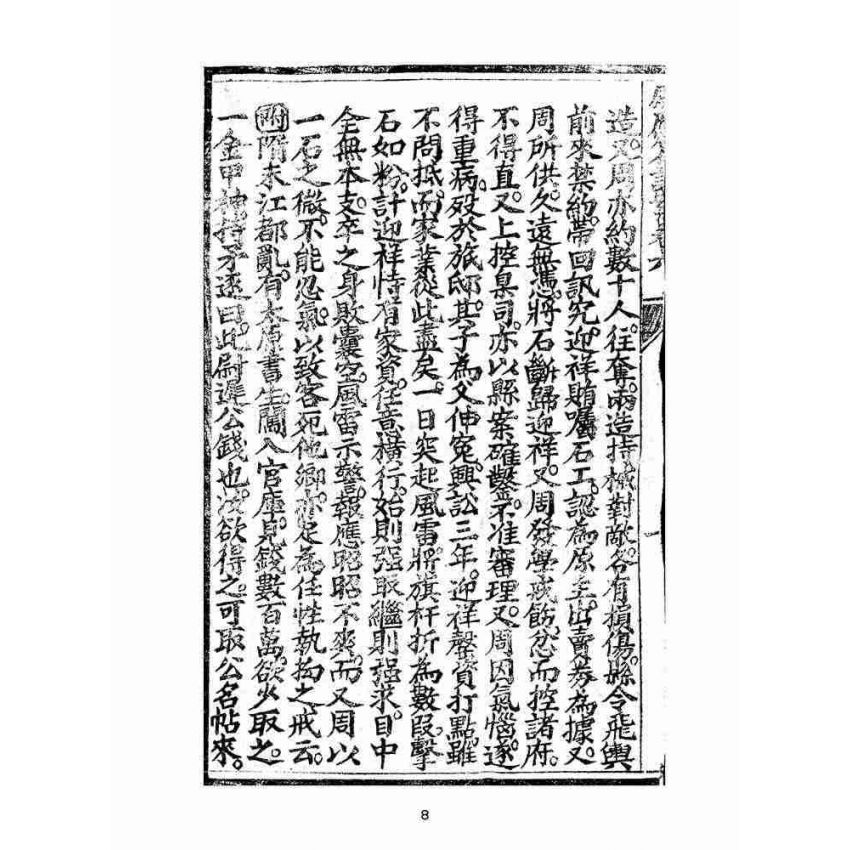 造。又周亦約數十人。往奪。兩造持械對敵。各有損傷。縣令飛輿
前來禁約。帶回訊究。迎祥賄囑石工。認為原主。出賣券為據。又
周所供。久遠無憑。將石斷歸迎祥。又周發學戒飭。忿而控諸府。
不得直。又上控臬司。亦以縣案確鑿。不准審理。又周因氣惱。遂
得重病。歿於旅邸。其子為父伸冤。興訟三年。迎祥罄資打點。雖
不問抵。而家業從此盡矣。一日突起風雷。將旗杆折為數段。擊
石如粉。計迎祥恃有家資。任意橫行。始則强取。繼則强求。目中
全無本支。卒之身敗囊空。風雷示警。報應昭昭不爽。而又周以
一石之微。不能忍氣。以致客死他鄉。亦足為任性執拗之戒云。
附隋末江都亂。有太原書生。闖入官庫。見錢數百萬。欲少取之。
一金甲神。持矛逐曰。此尉遲公錢也。汝欲得之。可取公名帖來。
8